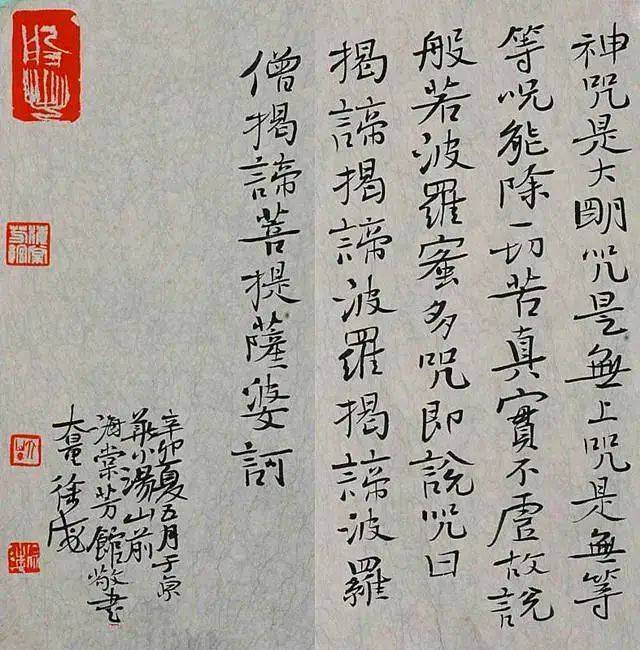 神咒是大朙咒是無上咒是無等
等呪能除一切苦真實不虛故說
般若波羅蜜多咒即說咒曰
揭諦揭諦波羅揭諦波羅
僧揭諦菩提薩婆訶
辛卯夏五月于京
華小湯山前
海棠芳館敬書
大量徐